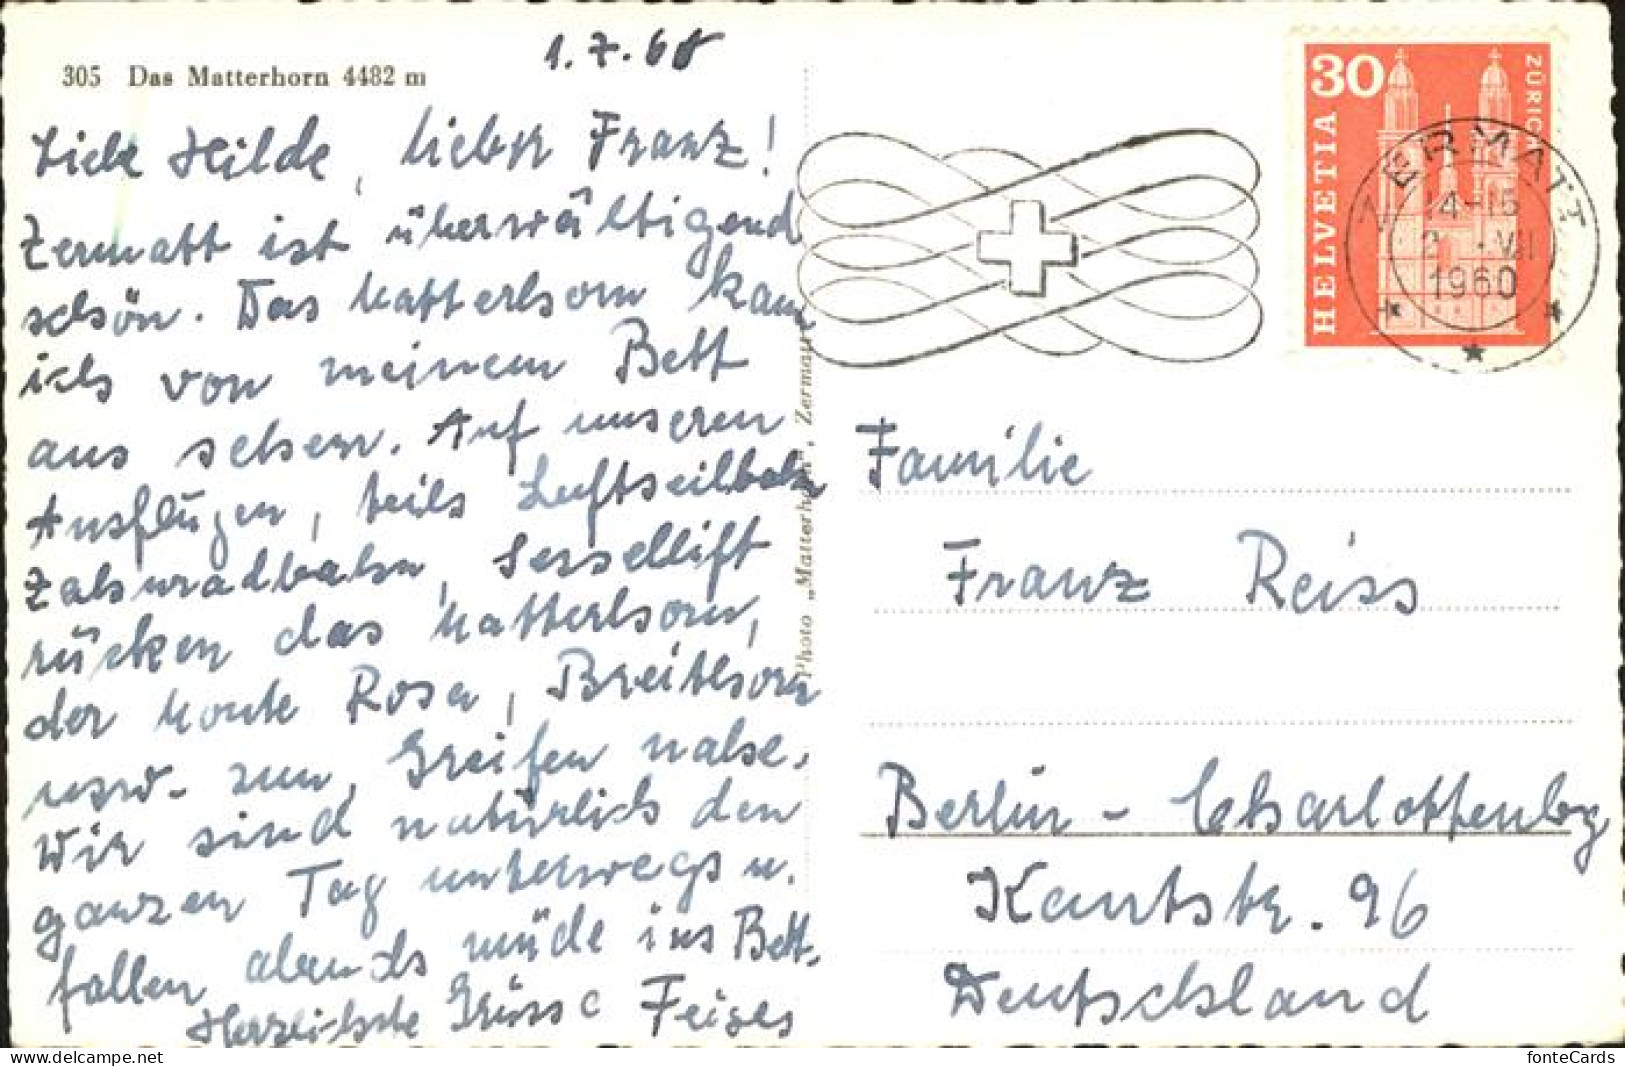 305 Das Matterhorn 4482 m
1.7.60
Liebe Hilde, lieber Franz!
Zermatt ist überwältigend
schön. Das Matterhorn kann
ich von meinem Bett
aus sehen. Auf unseren
Ausflügen, teils Luftseilbahn
Zahnradbahn, Sessellift
rücken das Matterhorn,
der Monte Rosa, Breithorn
usw. zum Greifen nahe.
Wir sind natürlich den
ganzen Tag unterwegs u.
fallen abends müde ins Bett.
Herzlichste Grüsse Feiges
Photo „Matterhorn", Zermatt
30
HELVETIA
ZÜRICH
ZERMATT
14-15
2. VII
1960
Familie
Franz Reiss
Berlin - Charlottenbg
Kantstr. 96
Deutschland
fonteCards
https://www.delcampe.net